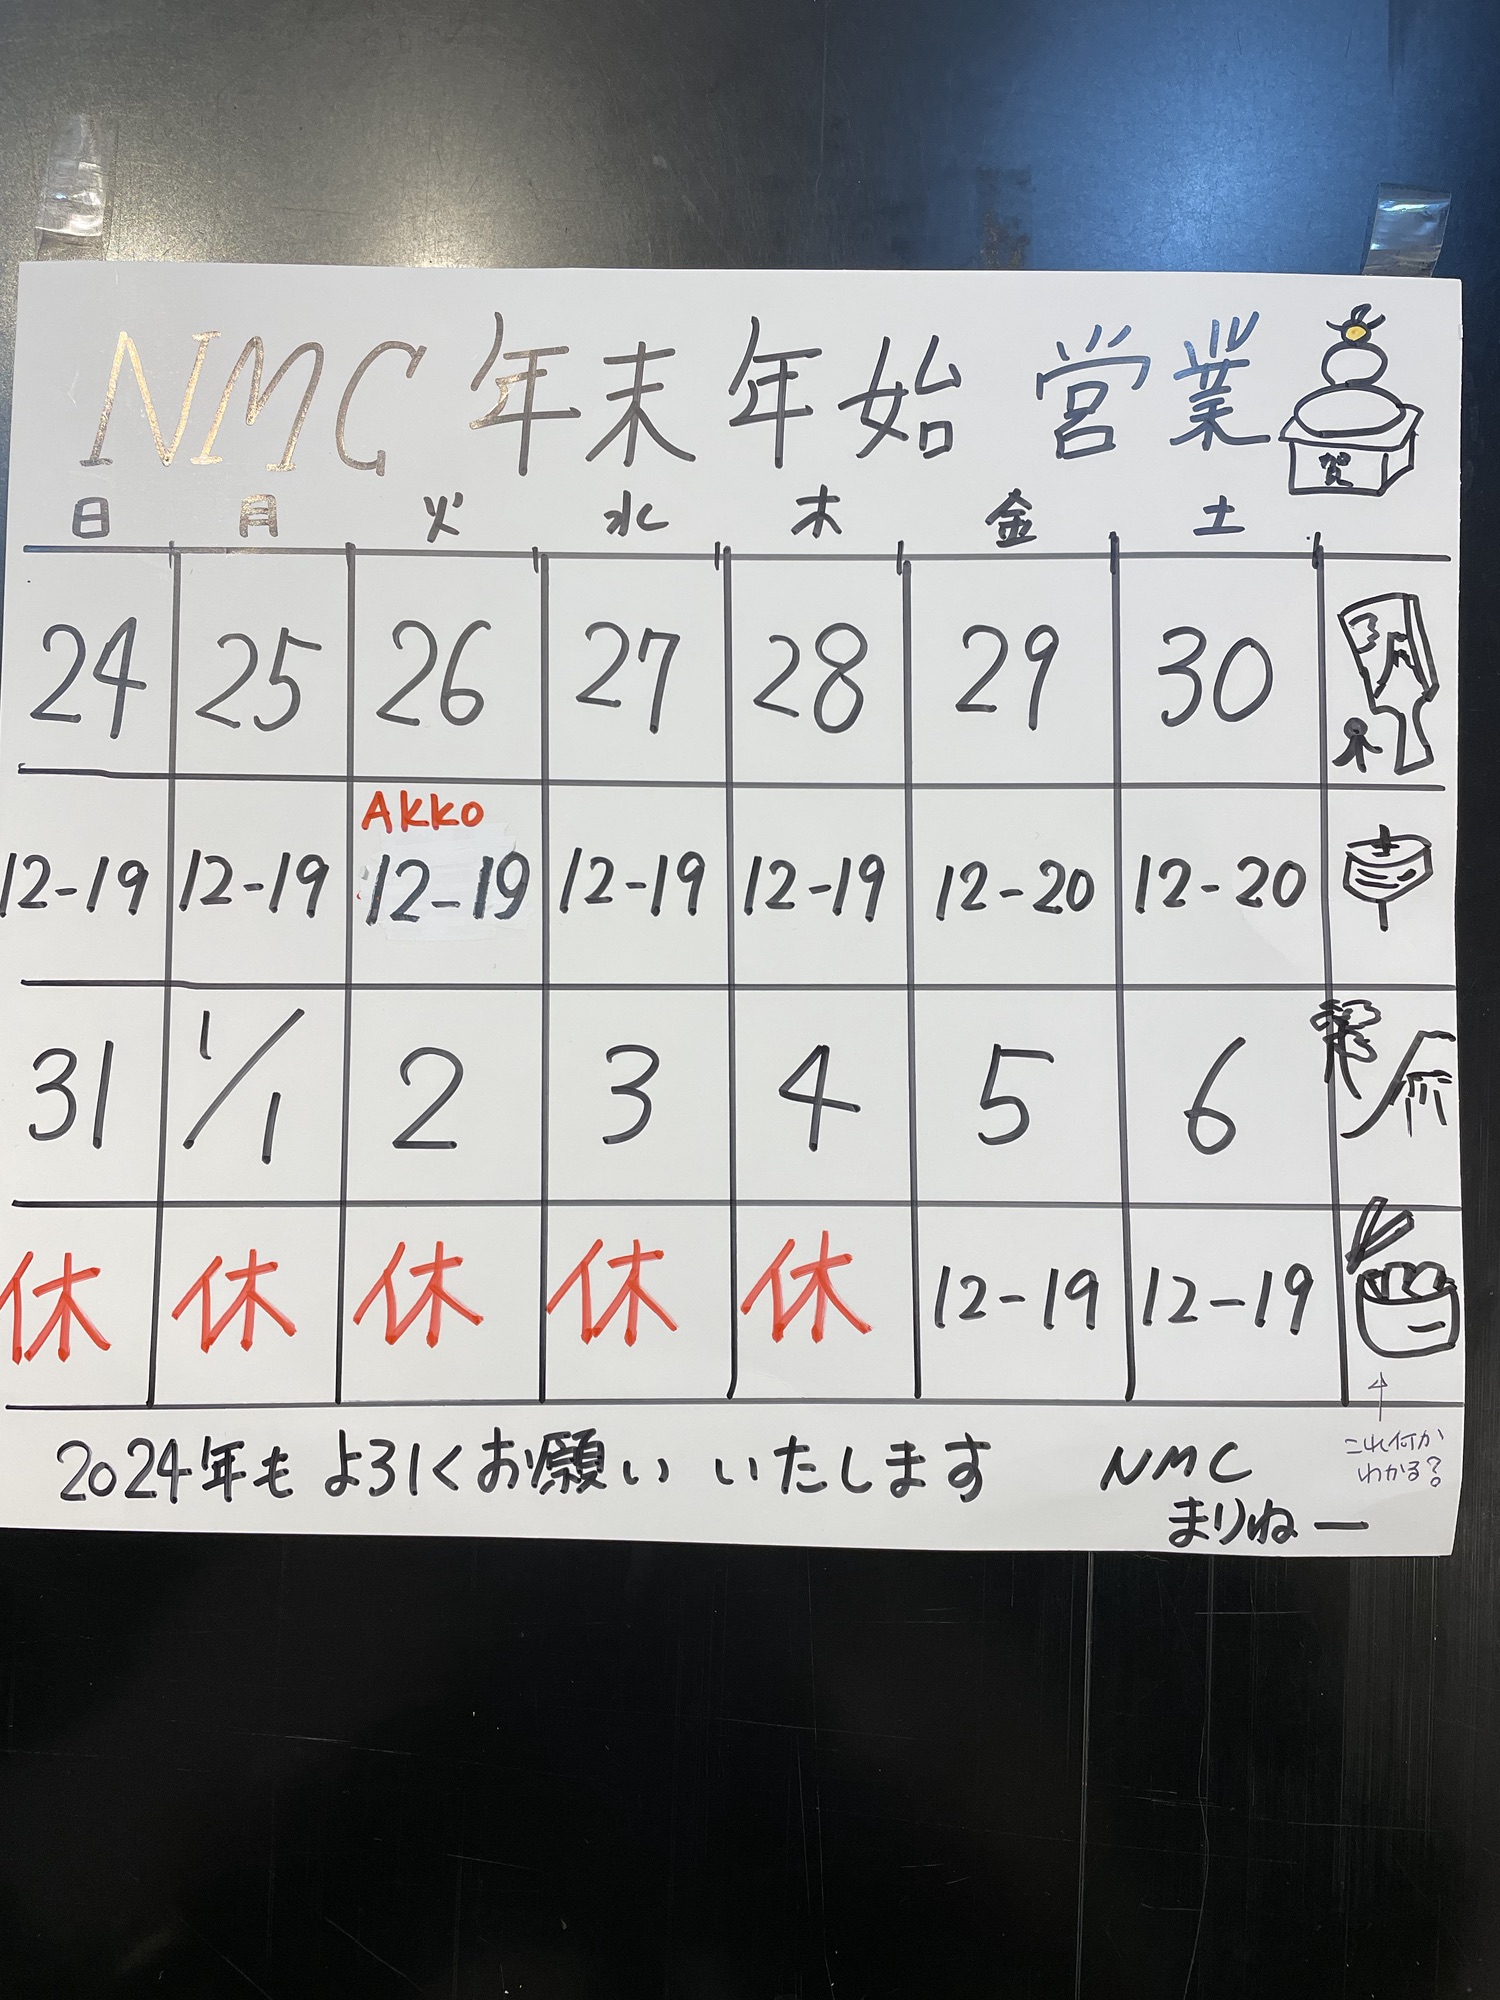 NMC 年末年始 営業
賀
日 月 火 水 木 金 土
24 25 26 27 28 29 30
AKKO
12-19 12-19 12-19 12-19 12-19 12-20 12-20
31 1/1 2 3 4 5 6
休 休 休 休 休 12-19 12-19
2024年も よろしくお願い いたします
NMC
まりねー
これ何か
わかる?